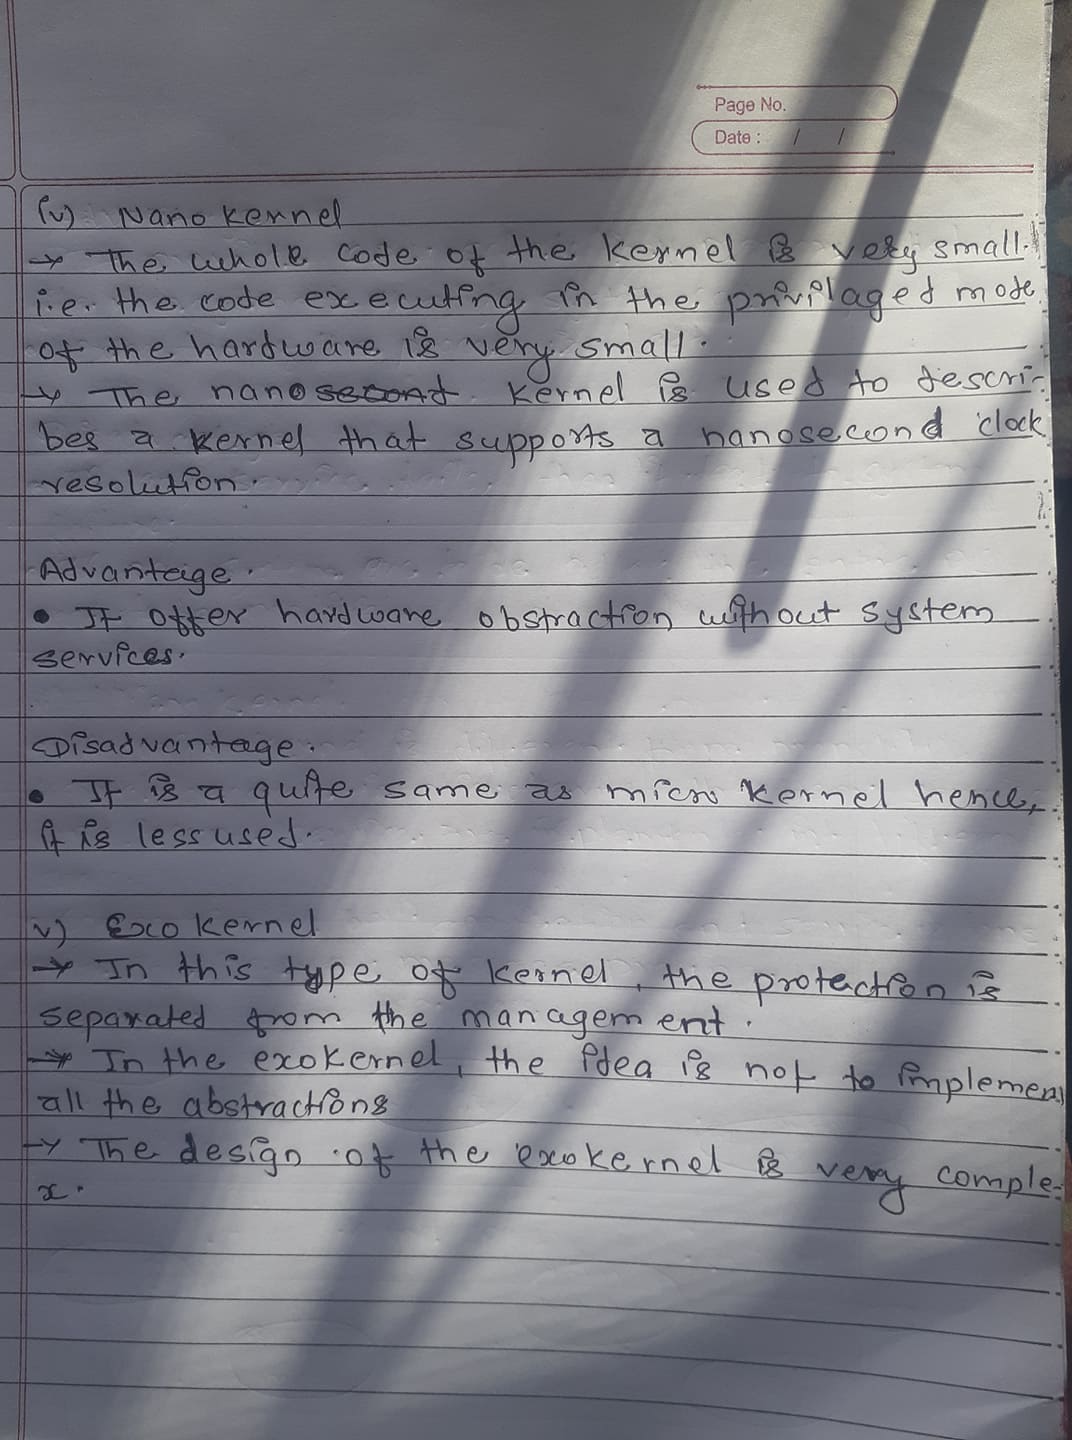 Page No.
Date : / /
iv) Nano kernel
→ The whole code of the kernel is very small.
i.e. the code executing in the privilaged mode
of the hardware is very small.
→ The nanosecond kernel is used to descri-
bes a kernel that supports a nanosecond clock
resolution.
Advantage.
• It offer hardware obstraction without system
services.
Disadvantage.
• It is a quite same as micro kernel hence,
it is less used.
v) Exo kernel
→ In this type of kernel, the protection is
separated from the management.
→ In the exokernel, the idea is not to implemen
all the abstractions
→ The design of the exokernel is very comple-
x.